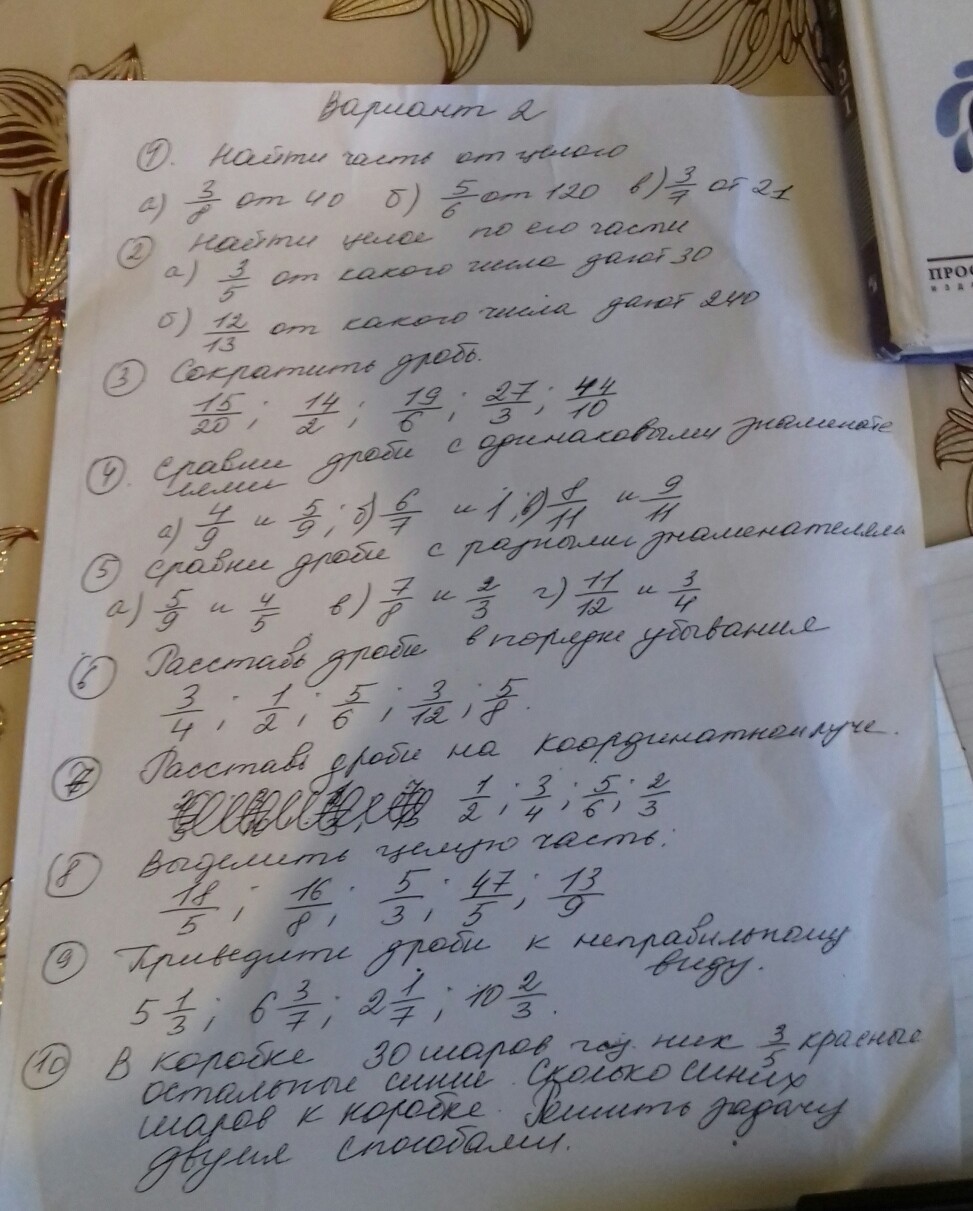 Вариант 2
1. Найти часть от целого
а) 3/8 от 40 б) 5/6 от 120 в) 3/7 от 21
2 Найти целое по его части
а) 3/5 от какого числа дают 30
б) 12/13 от какого числа дают 240
3 Сократить дробь.
15/20; 14/2; 19/6; 27/3; 44/10
4. Сравни дроби с одинаковыми знаменате
лями
а) 4/9 и 5/9; б) 6/7 и 1; в) 8/11 и 9/11
5 Сравни дроби с разными знаменателями
а) 5/9 и 4/5 в) 7/8 и 2/3 г) 11/12 и 3/4
6 Расставь дроби в порядке убывания
3/4; 1/2; 5/6; 3/12; 5/8.
7 Расставь дроби на координатном луче.
1/2; 3/4; 5/6; 2/3
8 Выделить целую часть:
18/5; 16/8; 5/3; 47/5; 13/9
9 Приведите дроби к неправильному
виду.
5 1/3; 6 3/7; 2 1/7; 10 2/3.
10 В коробке 30 шаров из них 3/5 красные
остальные синие. Сколько синих
шаров к коробке. Решить задачу
двумя способами.
ПРОС
ИЗДА